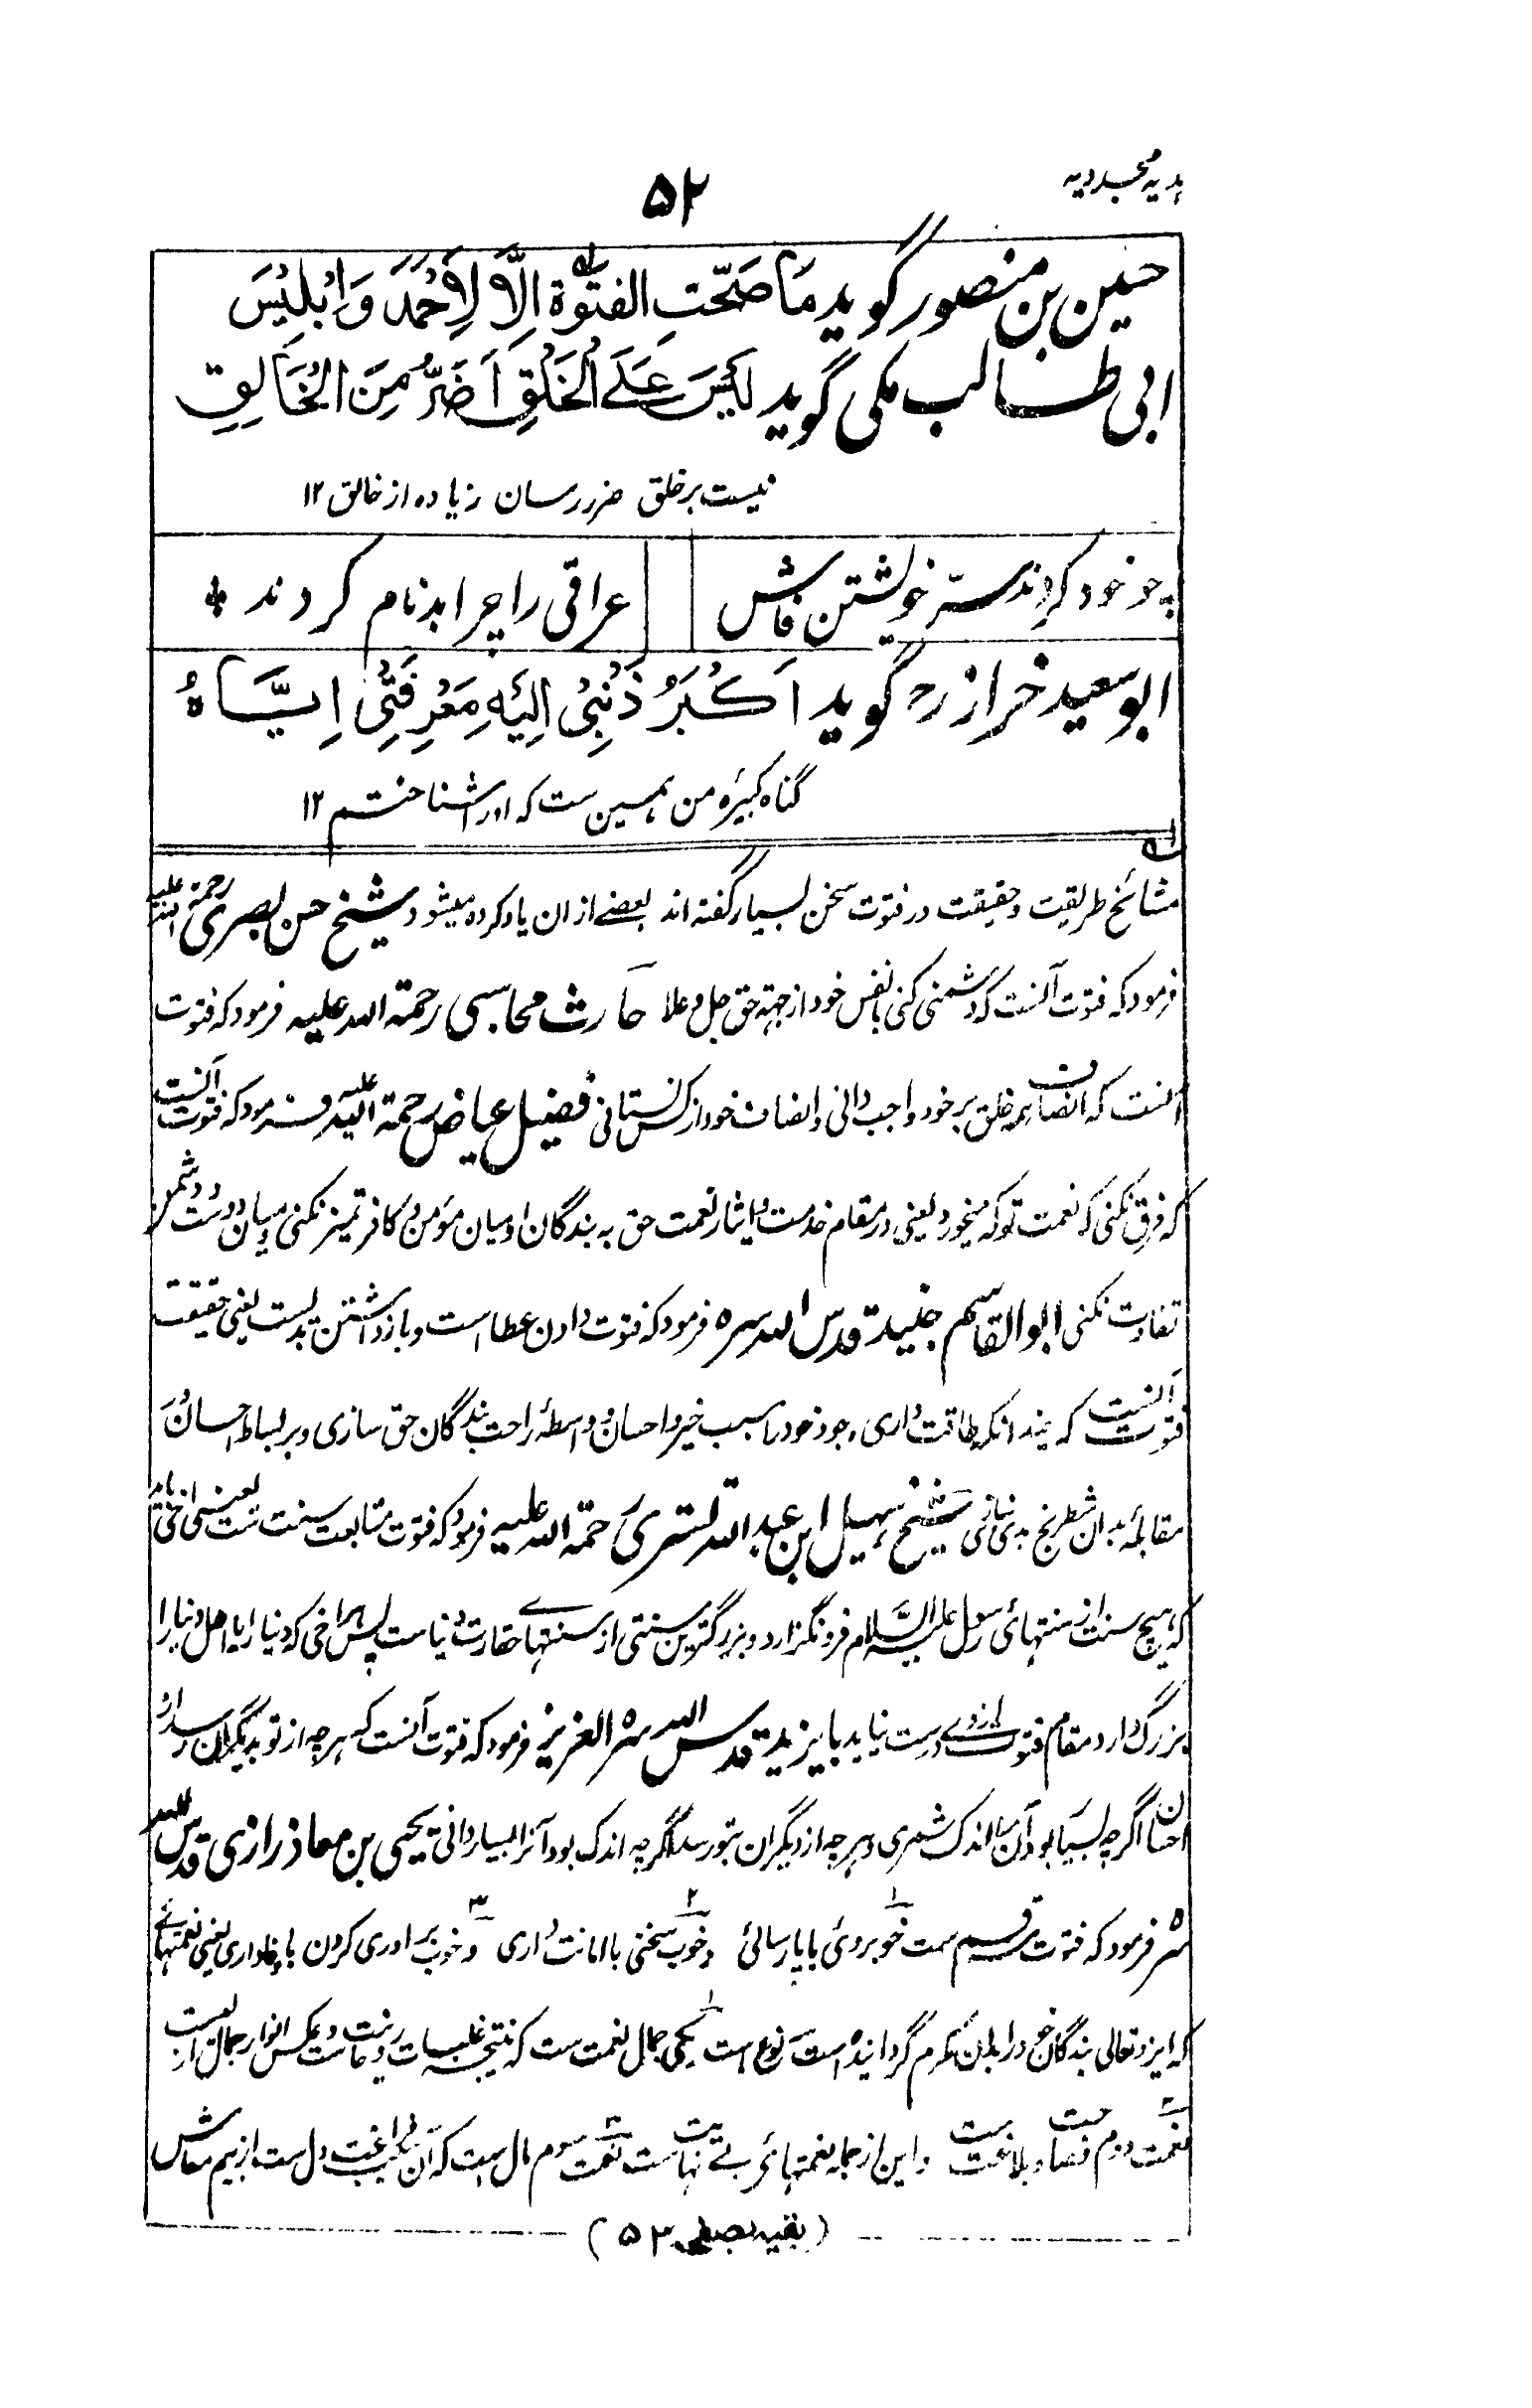 ہدیہ مجددیہ
۵۲
حسین بن منصور گوید مَا صَحَّتِ الفُتُوَّة اِلَّا لِاَحْمَدَ وَاِبْلِیْسَ
ابی طالب مکی گوید لَیْسَ عَلَے الْخَلْقِ اَضَرُّ مِنَ الْخَالِقِ
نیست بر خلق ضرر رسان زیادہ از خالق ۱۲
چو خود کردند سرّ خویشتن فاش
عراقی را چرا بدنام کردند
ابو سعید خراز رح گوید اَکْبَرُ ذَنْبِیْ اِلَیْہِ مَعْرِفَتِیْ اِیَّاہُ
گناہ کبیرہ من ہمین ست کہ اورا شناختم ۱۲
مشائخ طریقت و حقیقت در فتوت سخن بسیار گفتہ اند بعضے از ان یاد کردہ میشود شیخ حسن بصری رحمۃ اللہ علیہ
فرمود کہ فتوت آنست کہ دشمنی کنی با نفس خود از جہتہ حق جل و علا حارث محاسبی رحمۃ اللہ علیہ فرمود کہ فتوت
آنست کہ انصاف ہمہ خلق بر خود واجب دانی و انصاف خود از کس نستانی فضیل عیاض رحمۃ اللہ علیہ فرمود کہ فتوت آنست
کہ فرق نکنی کہ نعمت تو کہ میخورد یعنی در مقام خدمت و ایثار نعمت حق بہ بندگان او میان مؤمن و کافر تمیز نکنی و میان دوست و دشمن
تفاوت نکنی ابو القاسم جنید قدس اللہ سرہ فرمود کہ فتوت دادن عطا است و باز داشتن بدیست یعنی حقیقت
فتوت آنست کہ چندانکہ طاقت داری وجود خود را سبب خیر و احسان و واسطۂ راحت بندگان حق سازی و بر بساط احسان
مقابلۂ بدان شطرنج بدی نبازی شیخ سہیل ابن عبد اللہ تستری رحمۃ اللہ علیہ فرمود کہ فتوت متابعت سنت ست یعنی اخی باید
کہ ہیچ سنت از سنتہائ رسول علیہ السلام فرو نگزارد و بزرگترین سنتی از سنتہا حقارت دنیا ست پس ہر اخی کہ دنیا را یا اہل دنیا را
بزرگ دارد مقام فتوت از وے درست نیاید بایزید قدس اللہ سرہ العزیز فرمود کہ فتوت آنست کہ ہرچہ از تو بدیگران رسد از
احسان اگرچہ بسیار بود آن را اندک شمری و ہرچہ از دیگران بتو رسد اگرچہ اندک بود آنرا بسیار دانی یحیی بن معاذ رازی قدس اللہ
سرہ فرمود کہ فتوت سہ قسم ست خوبروئی با پارسائی و خوب سخنی با امانت داری و خوب برادری کردن با وفاداری یعنی نعمتہائے
کہ ایزد تعالی بندگان خود را بدان مکرم گردانیدہ است سہ نوع است یکی جمال نعمت ست کہ نتیجہ غلبات روحانیت و عکس انوار جمال ازلیست
نعمت دوم فصاحت و بلاغت ست و این از جملہ نعمتہائ بے نہایت ست نعمت سوم مال است کہ آن سبب فراغت دل ست از بیم معاش
(بقیہ بصفحہ ۵۳)